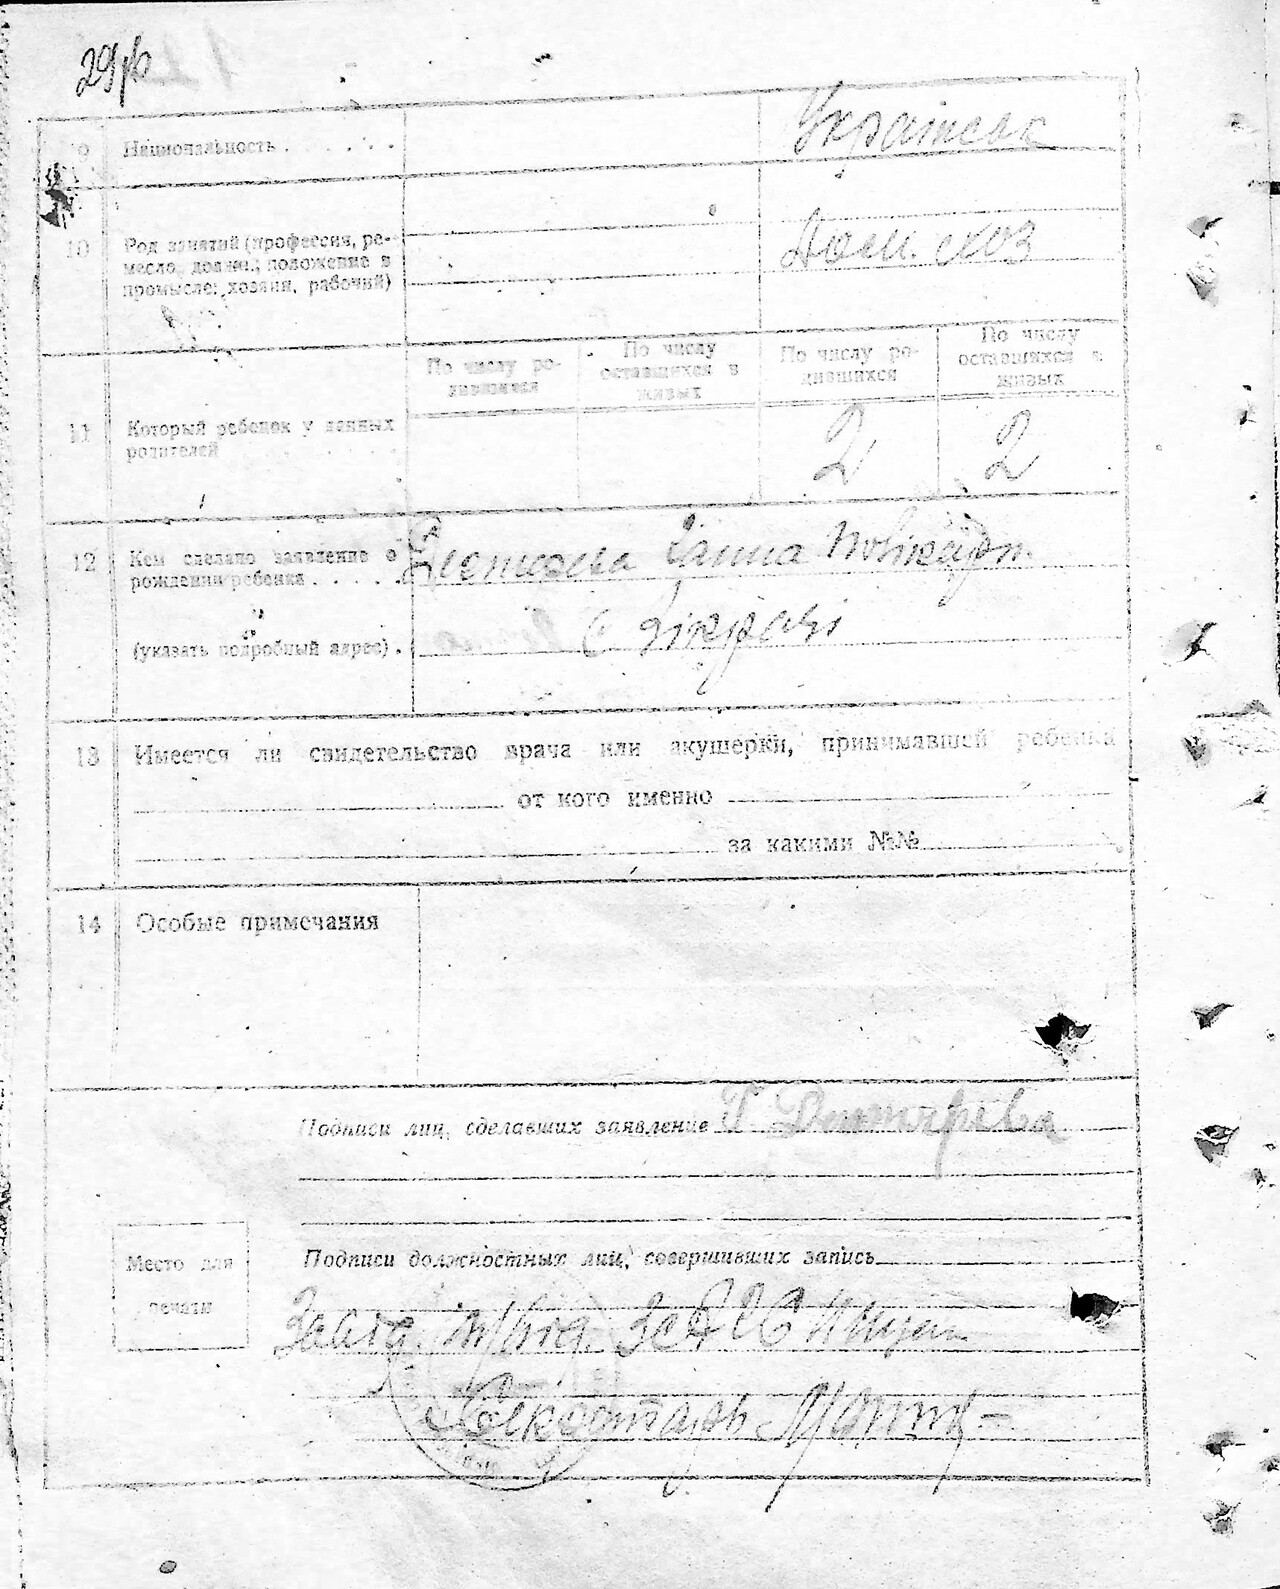 29
9 Национальность . . . . . . Українськ
10 Род занятий (профессия, ре-
месло, должн., положение в
промысле: хозяин, рабочий)
Дом. хоз
По числу ро-
дившихся
По числу
оставшихся в
живых
По числу ро-
дившихся
По числу
оставшихся в
живых
11 Который ребенок у данных
родителей . . . . . . . .
2 2
12 Кем сделано заявление о
рождении ребенка . . . . .
Ганна
(указать подробный адрес) .
с
13 Имеется ли свидетельство врача или акушерки, принимавшей ребенка
от кого именно
за какими №№
14 Особые примечания
Подписи лиц, сделавших заявление Г
Место для
печати
Подписи должностных лиц, совершивших запись
ЗАГС
Секретарь